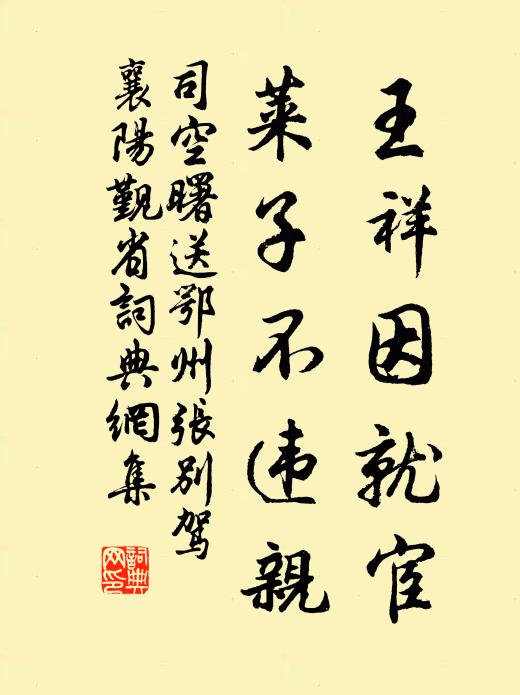 王祥因就宦
萊子不违親
司空曙送鄂州張别駕
襄陽覲省詞典網集
詞典
网印